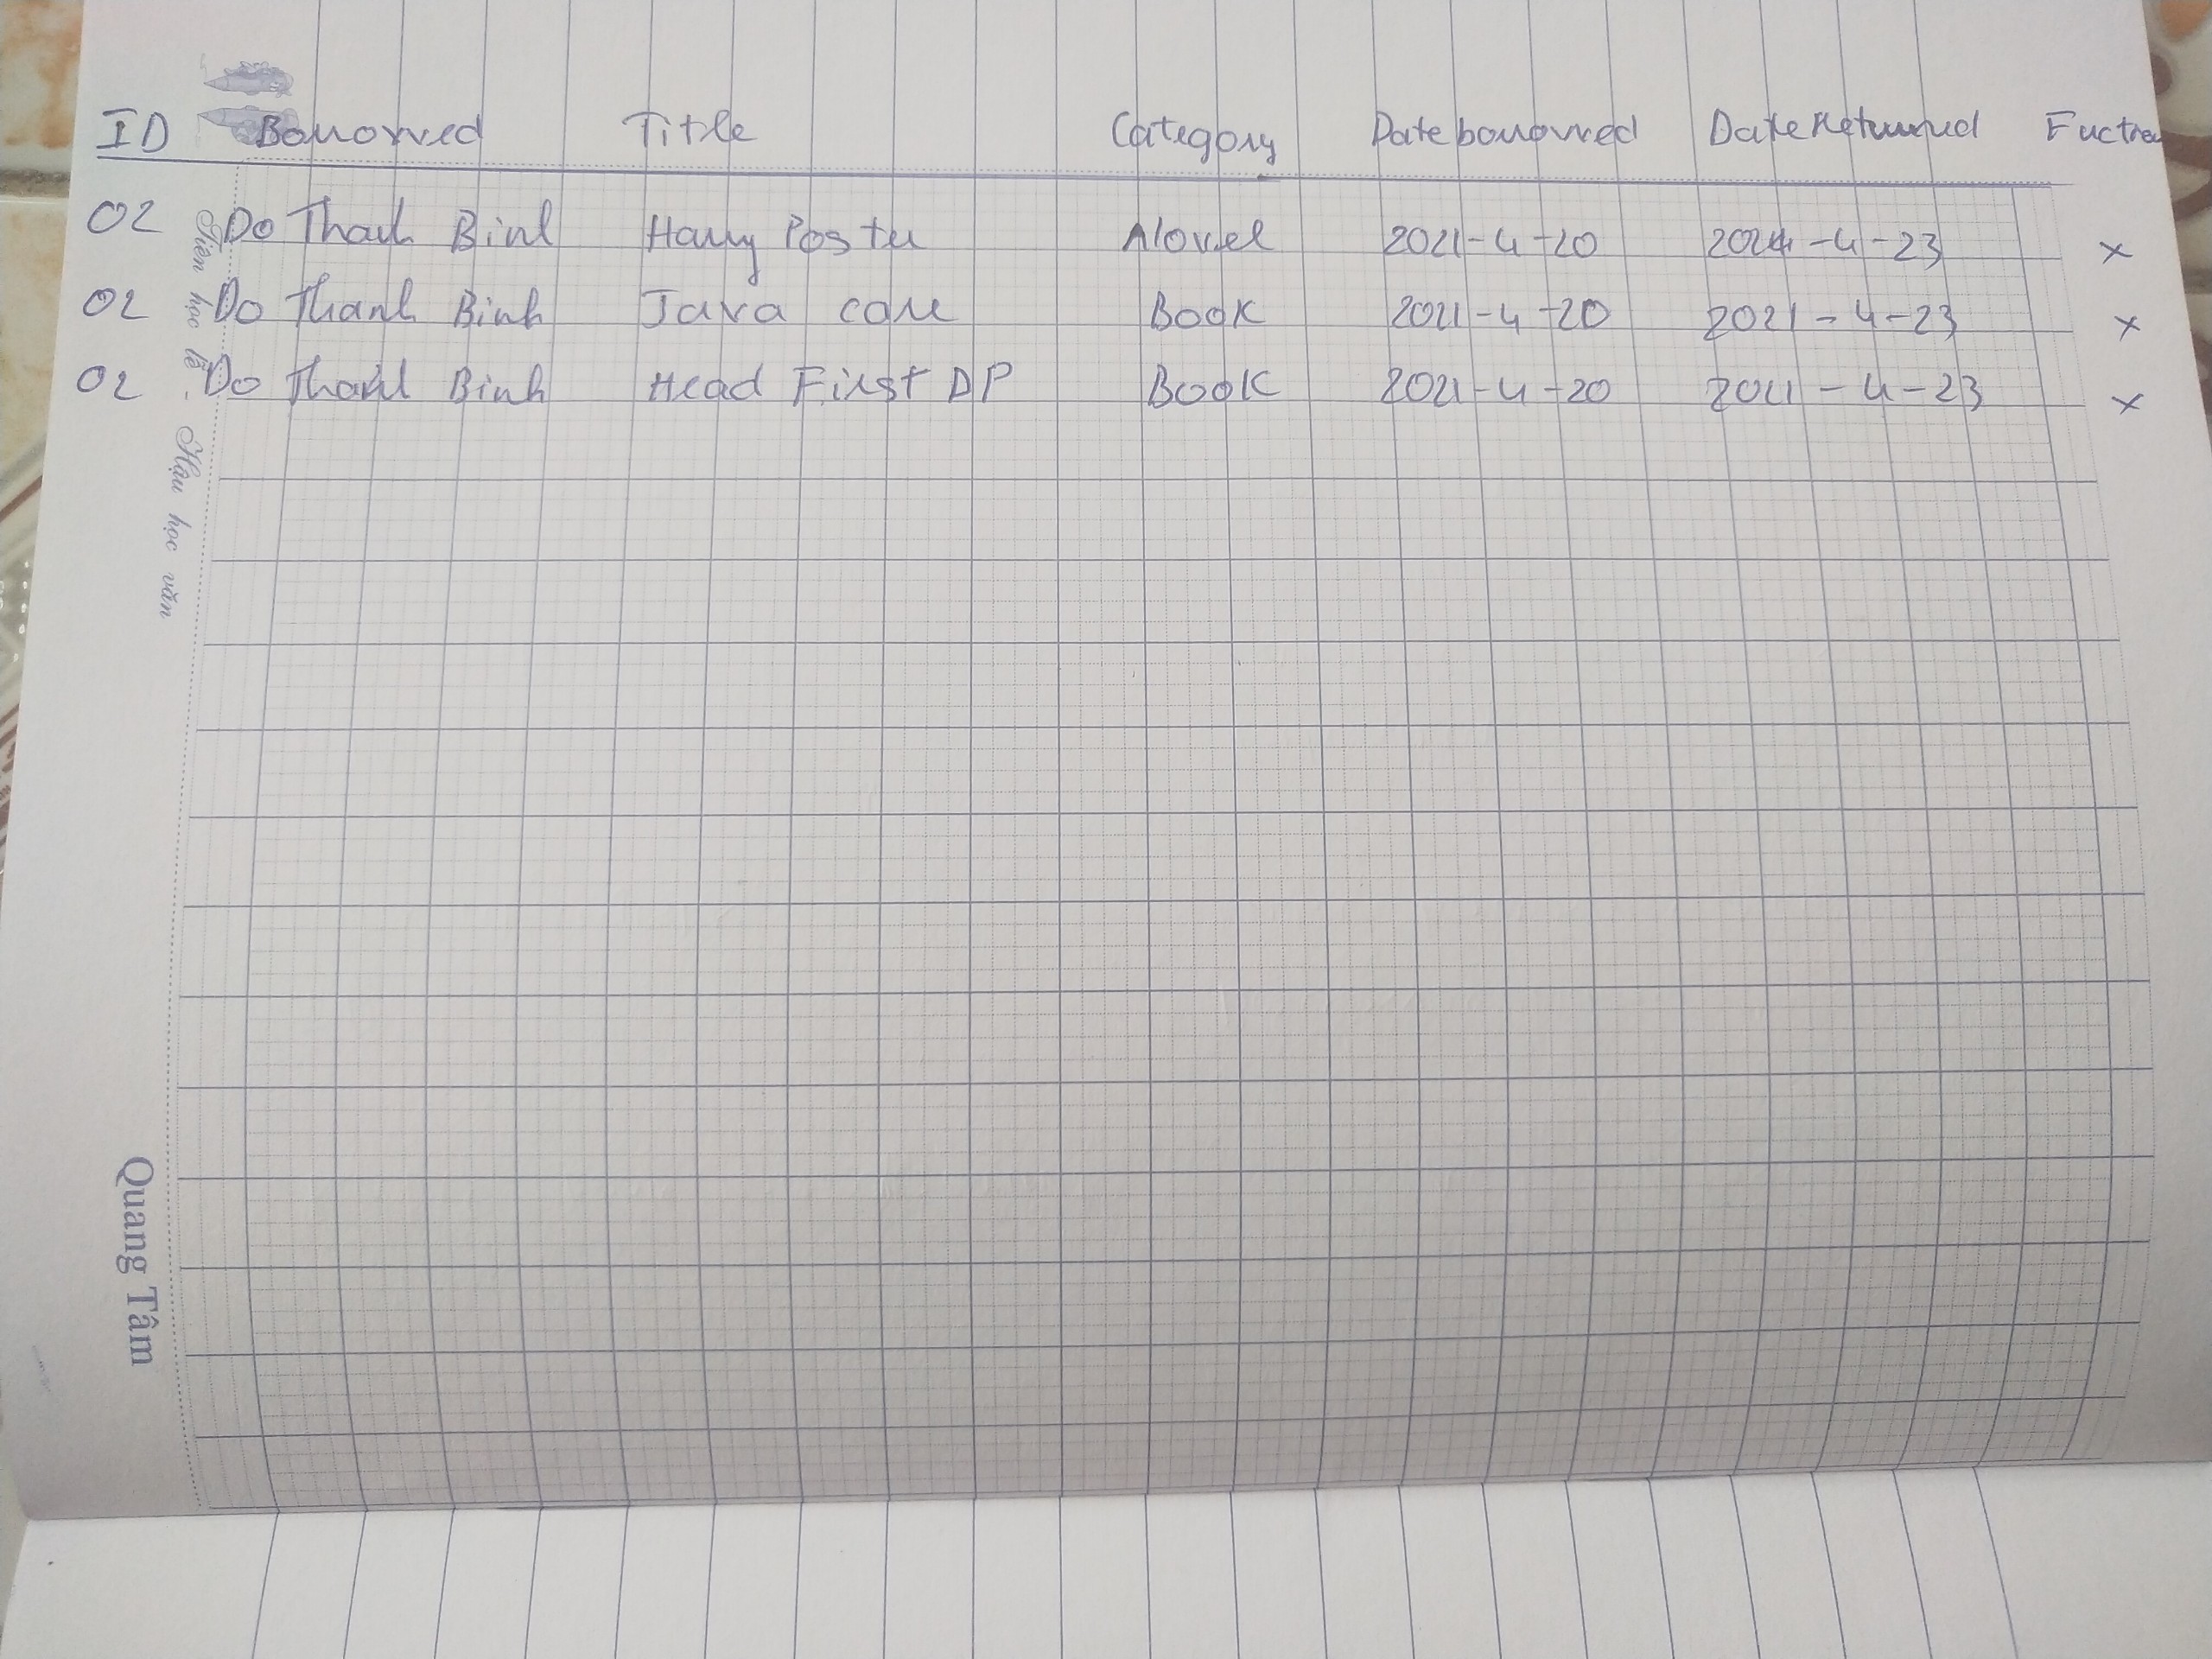 ID Borrorwed Title Category Date borrorwed Date Returned
02 Do Thanh Binh Harry Poster Novel 2021-4-20 2021-4-23 x
02 Do Thanh Binh Java core Book 2021-4-20 2021-4-23 x
02 Do Thanh Binh Head First DP Book 2021-4-20 2021-4-23 x
Tiên học lễ - Hậu học văn
Quang Tâm